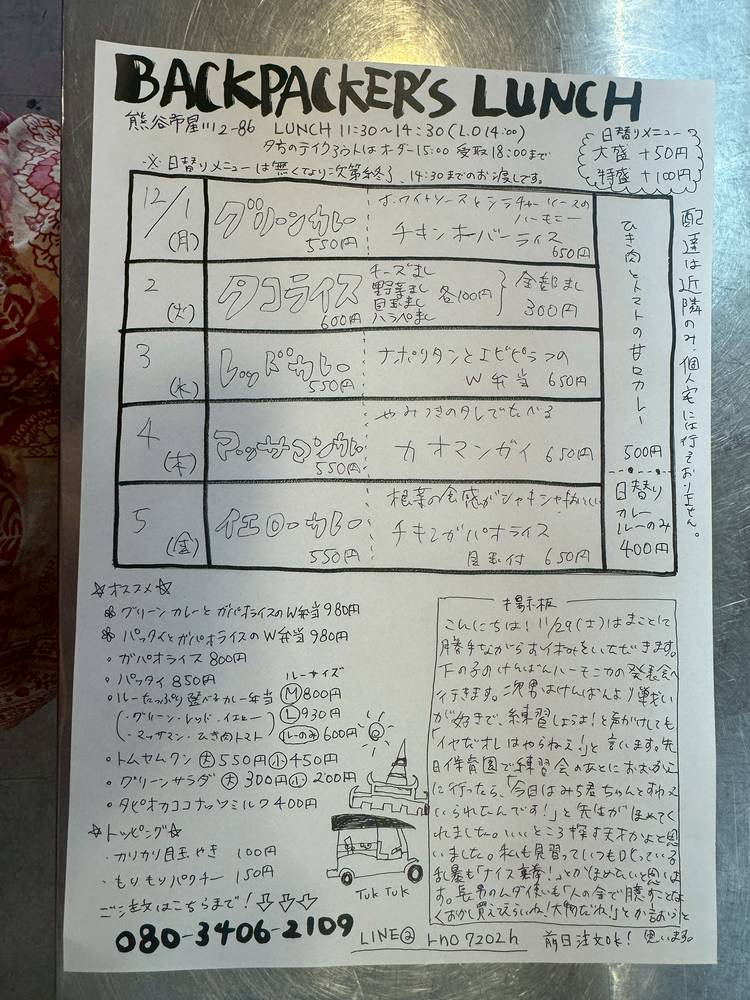 BACKPACKER'S LUNCH
熊谷市星川2-86 LUNCH 11:30〜14:30(L.O 14:00)
夕方のテイクアウトはオーダー15:00 受取18:00まで
※日替りメニューは無くなり次第終了、14:30までのお渡しです。
日替りメニュー
大盛 +50円
特盛 +100円
12/1
(月)
グリーンカレー
550円
ホワイトソースとシラチャーソースの
ハーモニー
チキンオーバーライス
650円
2
(火)
タコライス
600円
チーズまし
野菜まし
目玉まし
ハラペまし
各100円
全部まし
300円
3
(水)
レッドカレー
550円
ナポリタンとエビピラフの
W弁当 650円
4
(木)
マッサマンカレー
550円
やみつきのタレでたべる
カオマンガイ 650円
5
(金)
イエローカレー
550円
根菜の食感がシャキシャキおいしい
チキンガパオライス
目玉付 650円
ひき肉とトマトの甘口カレー
500円
日替り
カレー
ルーのみ
400円
配達は近隣のみ、個人宅には行えておりません。
☆オススメ☆
グリーンカレーとガパオライスのW弁当 980円
パッタイとガパオライスのW弁当 980円
・ガパオライス 800円
・パッタイ 850円
ルーサイズ
・ルーたっぷり選べるカレー弁当 Ⓜ800円
(・グリーン・レッド・イエロー Ⓛ930円
・マッサマン・ひき肉トマト) ルーのみ 600円
・トムヤムクン 大550円 小450円
・グリーンサラダ 大300円 小200円
・タピオカココナッツミルク 400円
☆トッピング☆
・カリカリ目玉やき 100円
・もりもりパクチー 150円
ご注文はこちらまで!⇩⇩⇩
080-3406-2109
TUK TUK
掲示板
こんにちは!11/29(土)はまことに
勝手ながらお休みをいただきます。
下の子のけんばんハーモニカの発表会へ
行きます。次男はけんばんより戦い
が好きで、練習しようよ!と声がけしても
「イヤだオレはやらねえ!」と言います。先
日保育園で練習会のあとにおむかえ
に行ったら、「今日はみち君ちゃんとすわって
いられたんです!」と先生がほめてく
れました。いいところ探す天才かよと思
いました。私も見習っていつもDVっている
乱暴も「ナイス裏拳!」とかほめたいと思いま
す。長男のムダ使いも「人の金で臆すことな
くおかし買えてえらいね!大物だね!」とか言おうと
思います。
LINE@ rno7202h 前日注文OK!